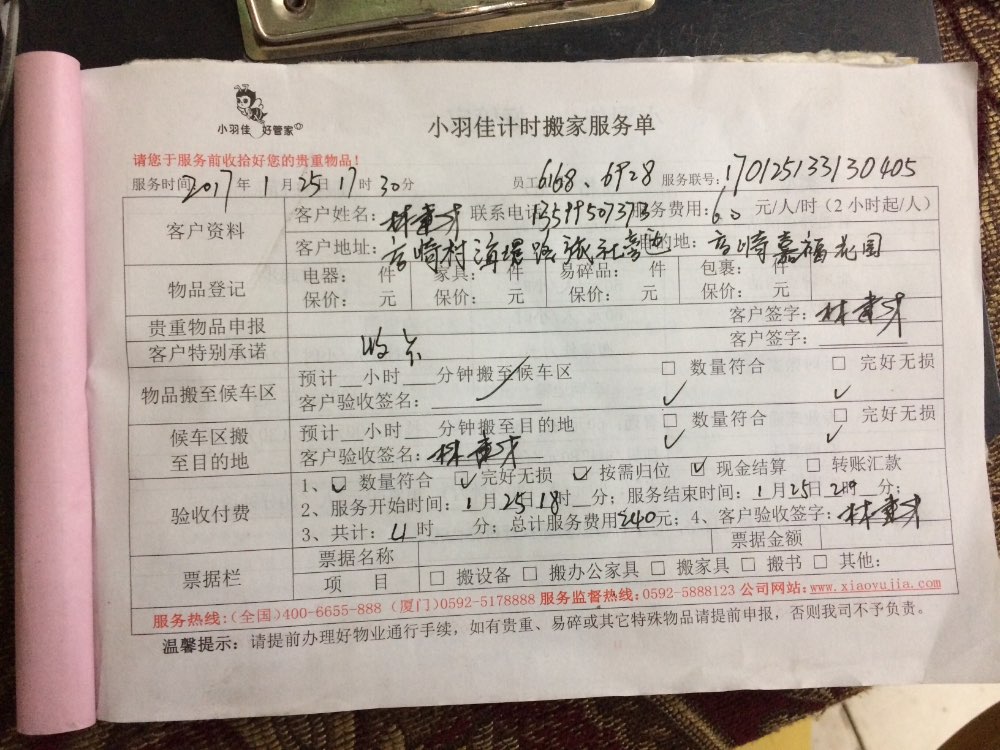 小羽佳 好管家
小羽佳计时搬家服务单
请您于服务前收拾好您的贵重物品！
服务时间 2017年 1月 25日 17时 30分 员工 6168、6928 服务联号: 170125133130405
客户资料
客户姓名: 林 联系电话 13599507373 服务费用: 60 元/人/时(2小时起/人)
客户地址: 高崎村 环路 社旁边 目的地: 高崎嘉福花园
物品登记
电器: 件 家具: 件 易碎品: 件 包裹: 件
保价: 元 保价: 元 保价: 元 保价: 元
贵重物品申报 客户签字: 林
客户特别承诺 收 客户签字:
物品搬至候车区
预计__小时___分钟搬至候车区 □ 数量符合 □ 完好无损
客户验收签名: ✓ ✓
候车区搬至目的地
预计__小时___分钟搬至目的地 □ 数量符合 □ 完好无损
客户验收签名: 林 ✓ ✓
验收付费
1、☑ 数量符合 ☑ 完好无损 ☑ 按需归位 ☑ 现金结算 □ 转账汇款
2、服务开始时间: 1月25日18时__分; 服务结束时间: 1月25日 时__分;
3、共计: 4时___分; 总计服务费用240元; 4、客户验收签字: 林
票据栏
票据名称 票据金额
项 目 □ 搬设备 □ 搬办公家具 □ 搬家具 □ 搬书 □ 其他:
服务热线:(全国)400-6655-888 (厦门)0592-5178888 服务监督热线:0592-5888123 公司网站:www.xiaoyujia.com
温馨提示: 请提前办理好物业通行手续，如有贵重、易碎或其它特殊物品请提前申报，否则我司不予负责。